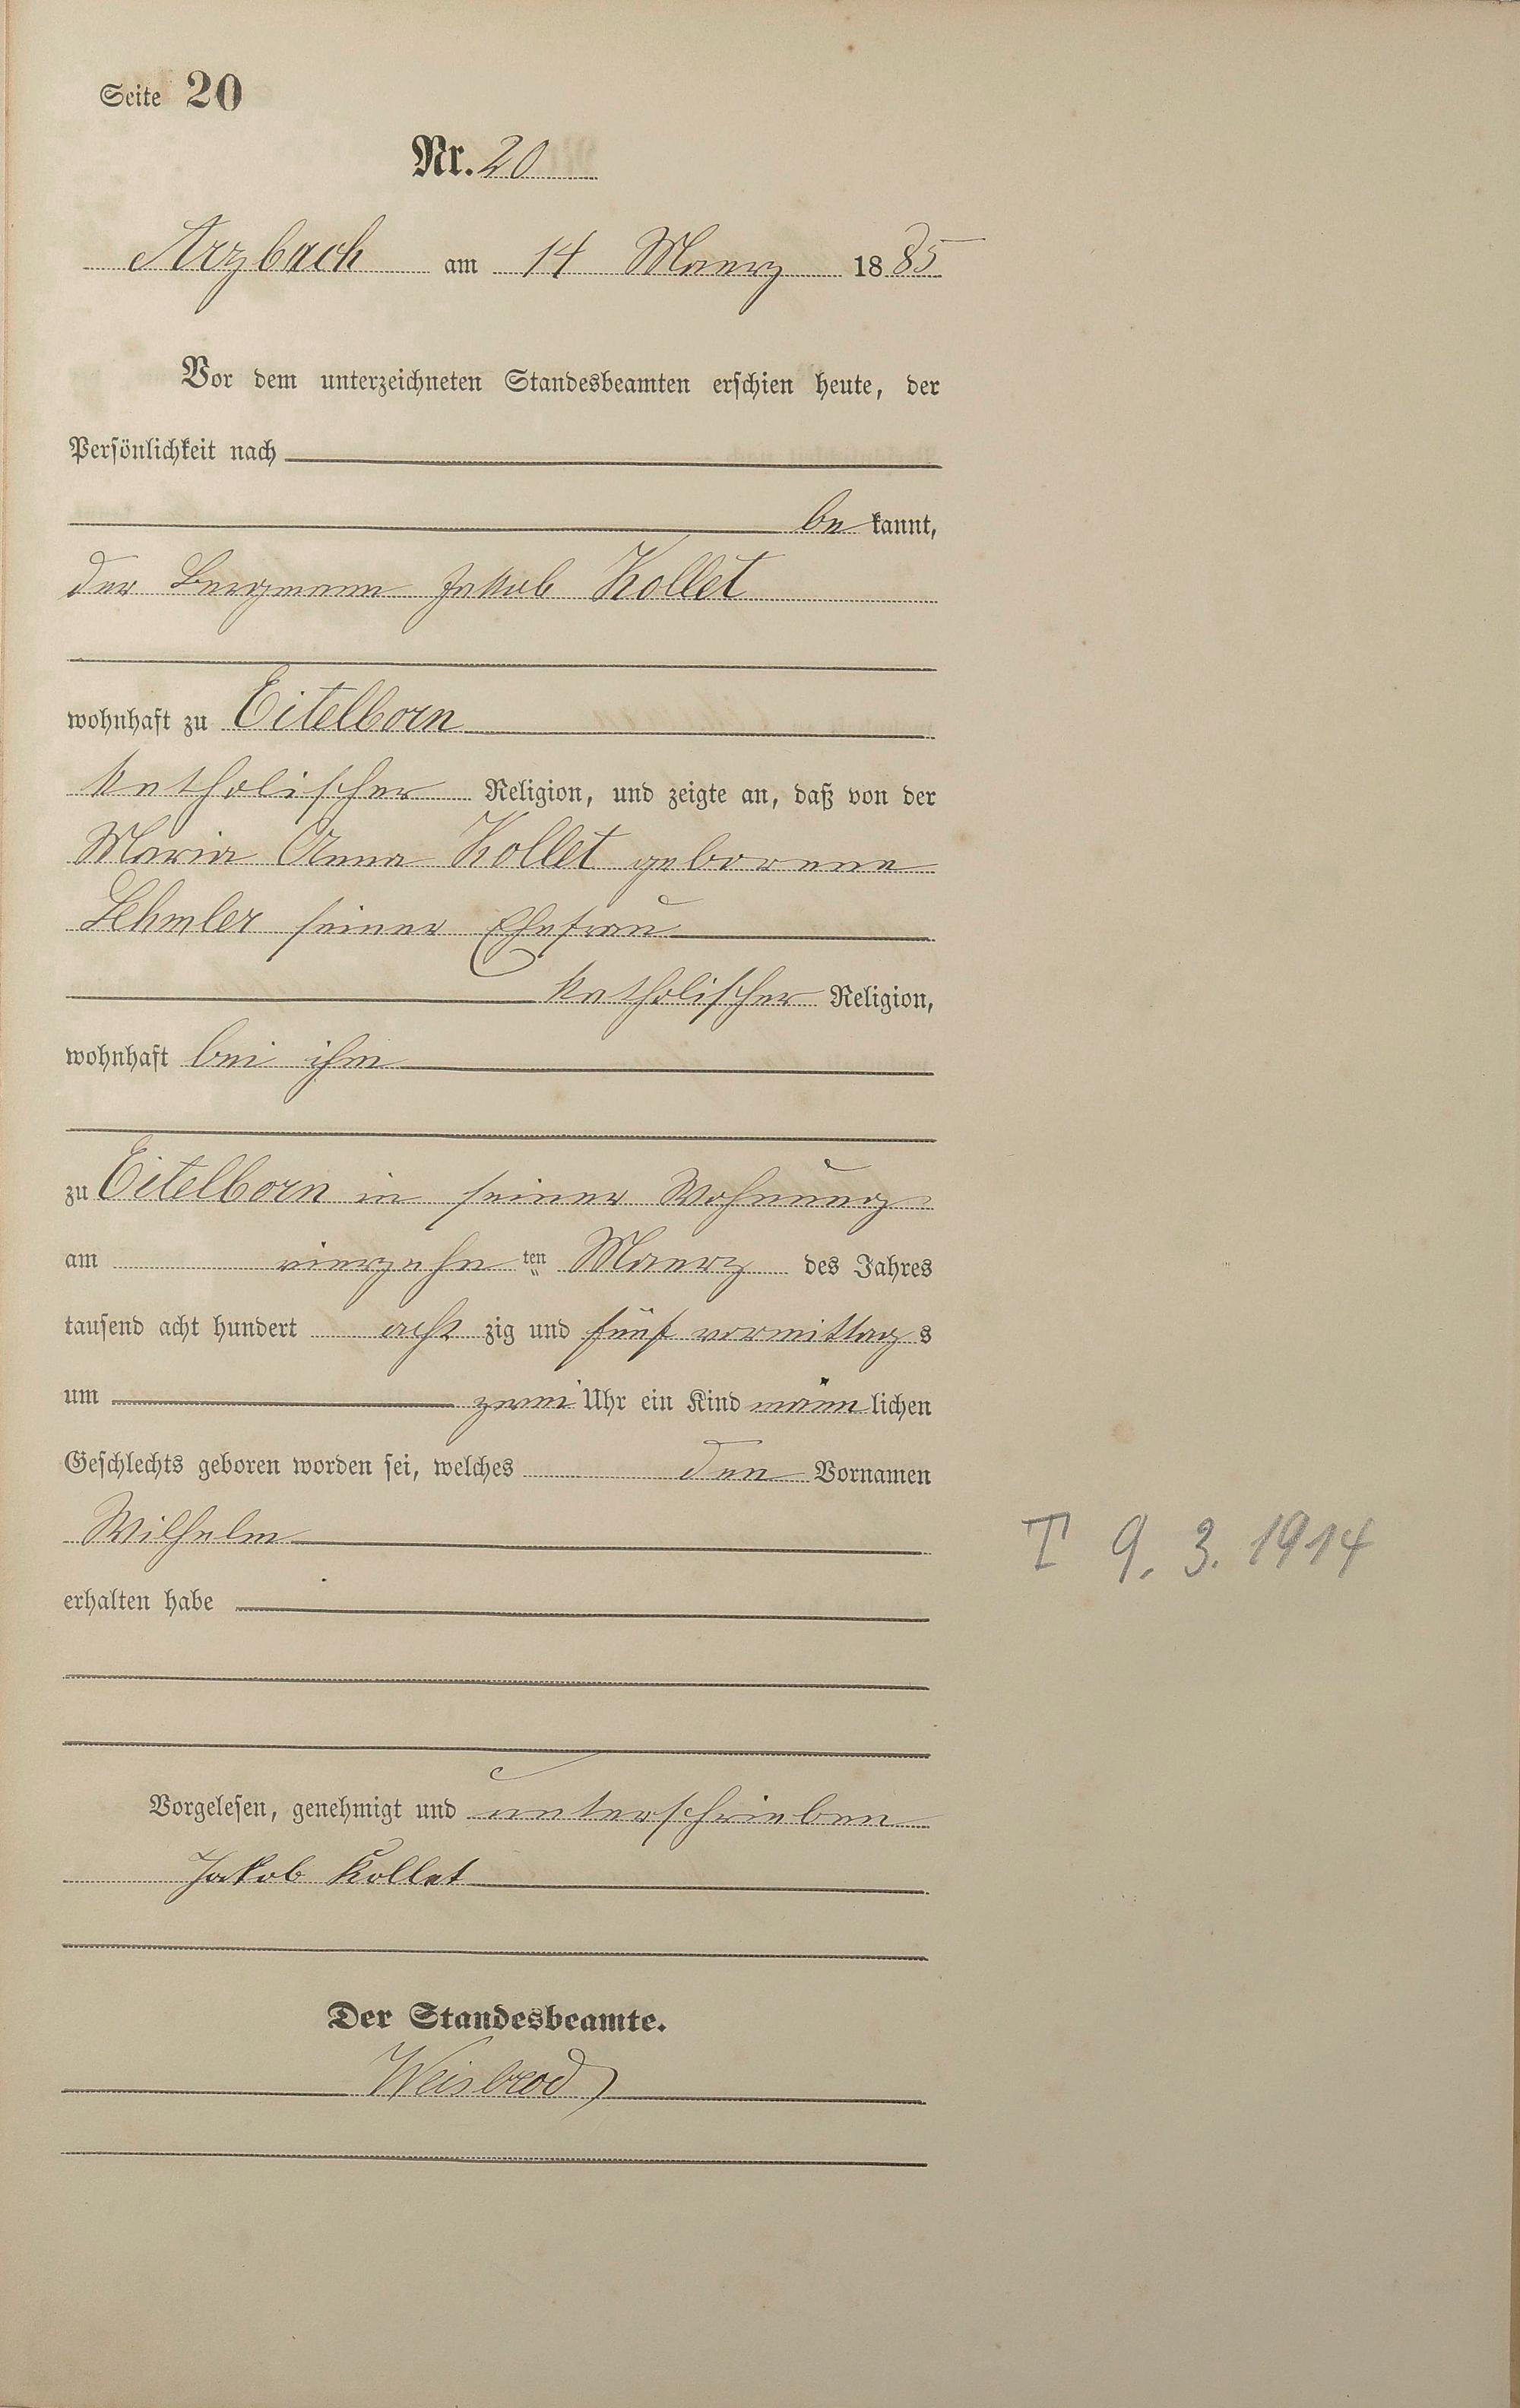 Seite 20
Nr. 20
Arzbach am 14 Maerz 1885
Vor dem unterzeichneten Standesbeamten erschien heute, der
Persönlichkeit nach
be kannt,
der Bergmann Jakob Kollet
wohnhaft zu Eitelborn
katholischer Religion, und zeigte an, daß von der
Maria Anna Kollet geborene
Lehmler seiner Ehefrau
katholischer Religion,
wohnhaft bei ihm
zu Eitelborn in seiner Wohnung
am vierzehn ten Maerz des Jahres
tausend acht hundert acht zig und fünf vormittags
um zwei Uhr ein Kind männ lichen
Geschlechts geboren worden sei, welches den Vornamen
Wilhelm
T 9. 3. 1914
erhalten habe
Vorgelesen, genehmigt und unterschrieben
Jakob Kollet
Der Standesbeamte.
Weisbrod